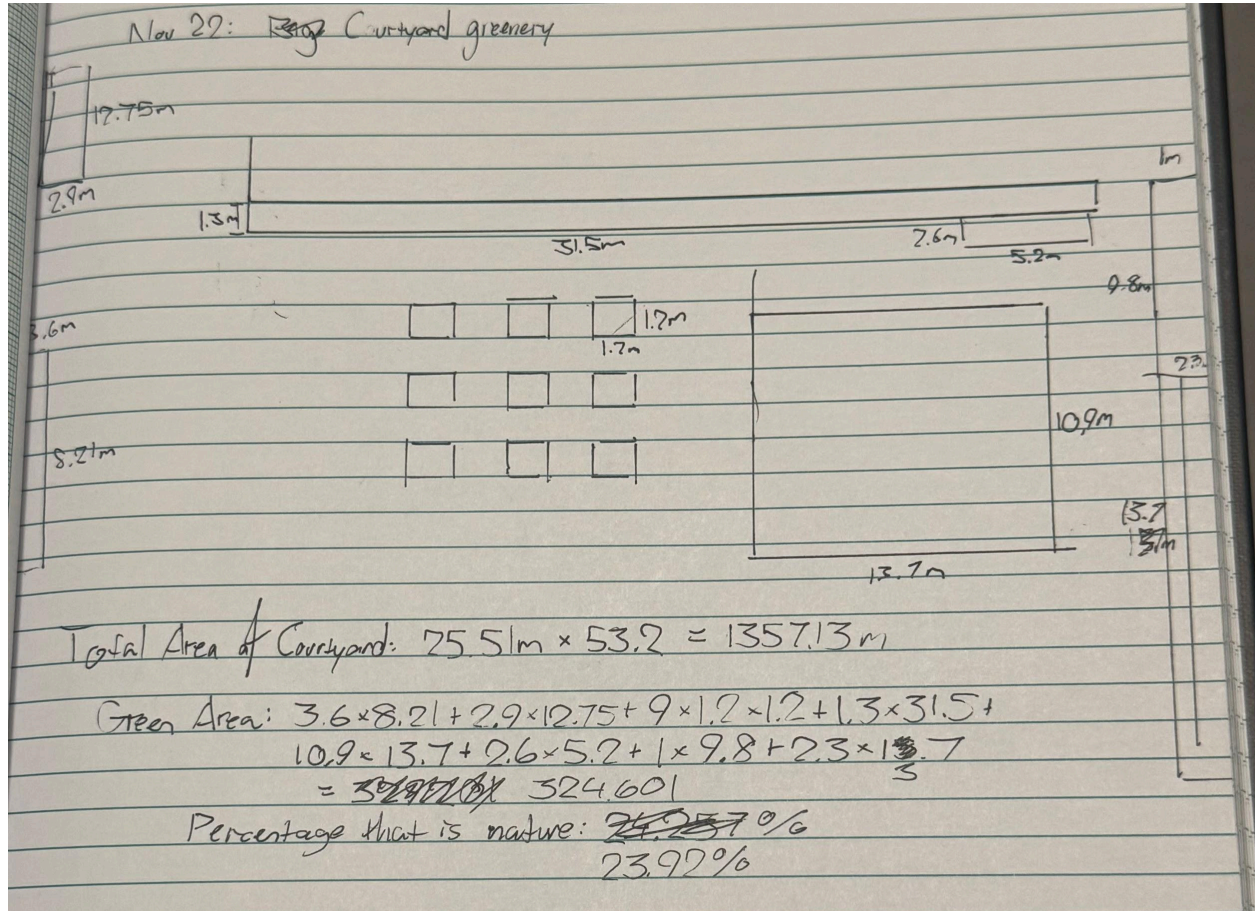 Nov 22: Courtyard greenery
12.75m
2.9m
1m
1.3m
31.5m
2.6m
5.2m
9.8m
3.6m
8.21m
1.2m
1.2m
10.9m
13.7m
2.3
13.7
Total Area of Courtyard: 25.51m × 53.2 = 1357.13m
Green Area: 3.6×8.21+2.9×12.75+9×1.2×1.2+1.3×31.5+
10.9×13.7+2.6×5.2+1×9.8+2.3×13.7
= 324.601
Percentage that is nature: %
23.92%